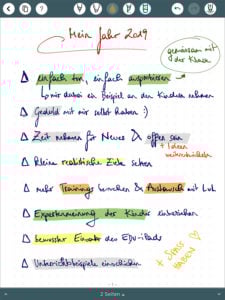 Mein Jahr 2019
gemeinsam mit
der Klasse
Δ einfach tun, einfach ausprobieren
mir dabei ein Beispiel an den Kindern nehmen
Δ Geduld mit mir selbst haben :)
Δ Zeit nehmen für Neues & offen sein
+ Ideen
weiterentwickeln
Δ kleine realistische Ziele setzen
Δ mehr Trainings besuchen & Austausch mit LuL
Δ Expertenmeinung der Kinder einbeziehen
Δ bewusster Einsatz des EDU-iPads
Δ Unterrichtsbeispiele
+ SPASS
HABEN
2 Seiten